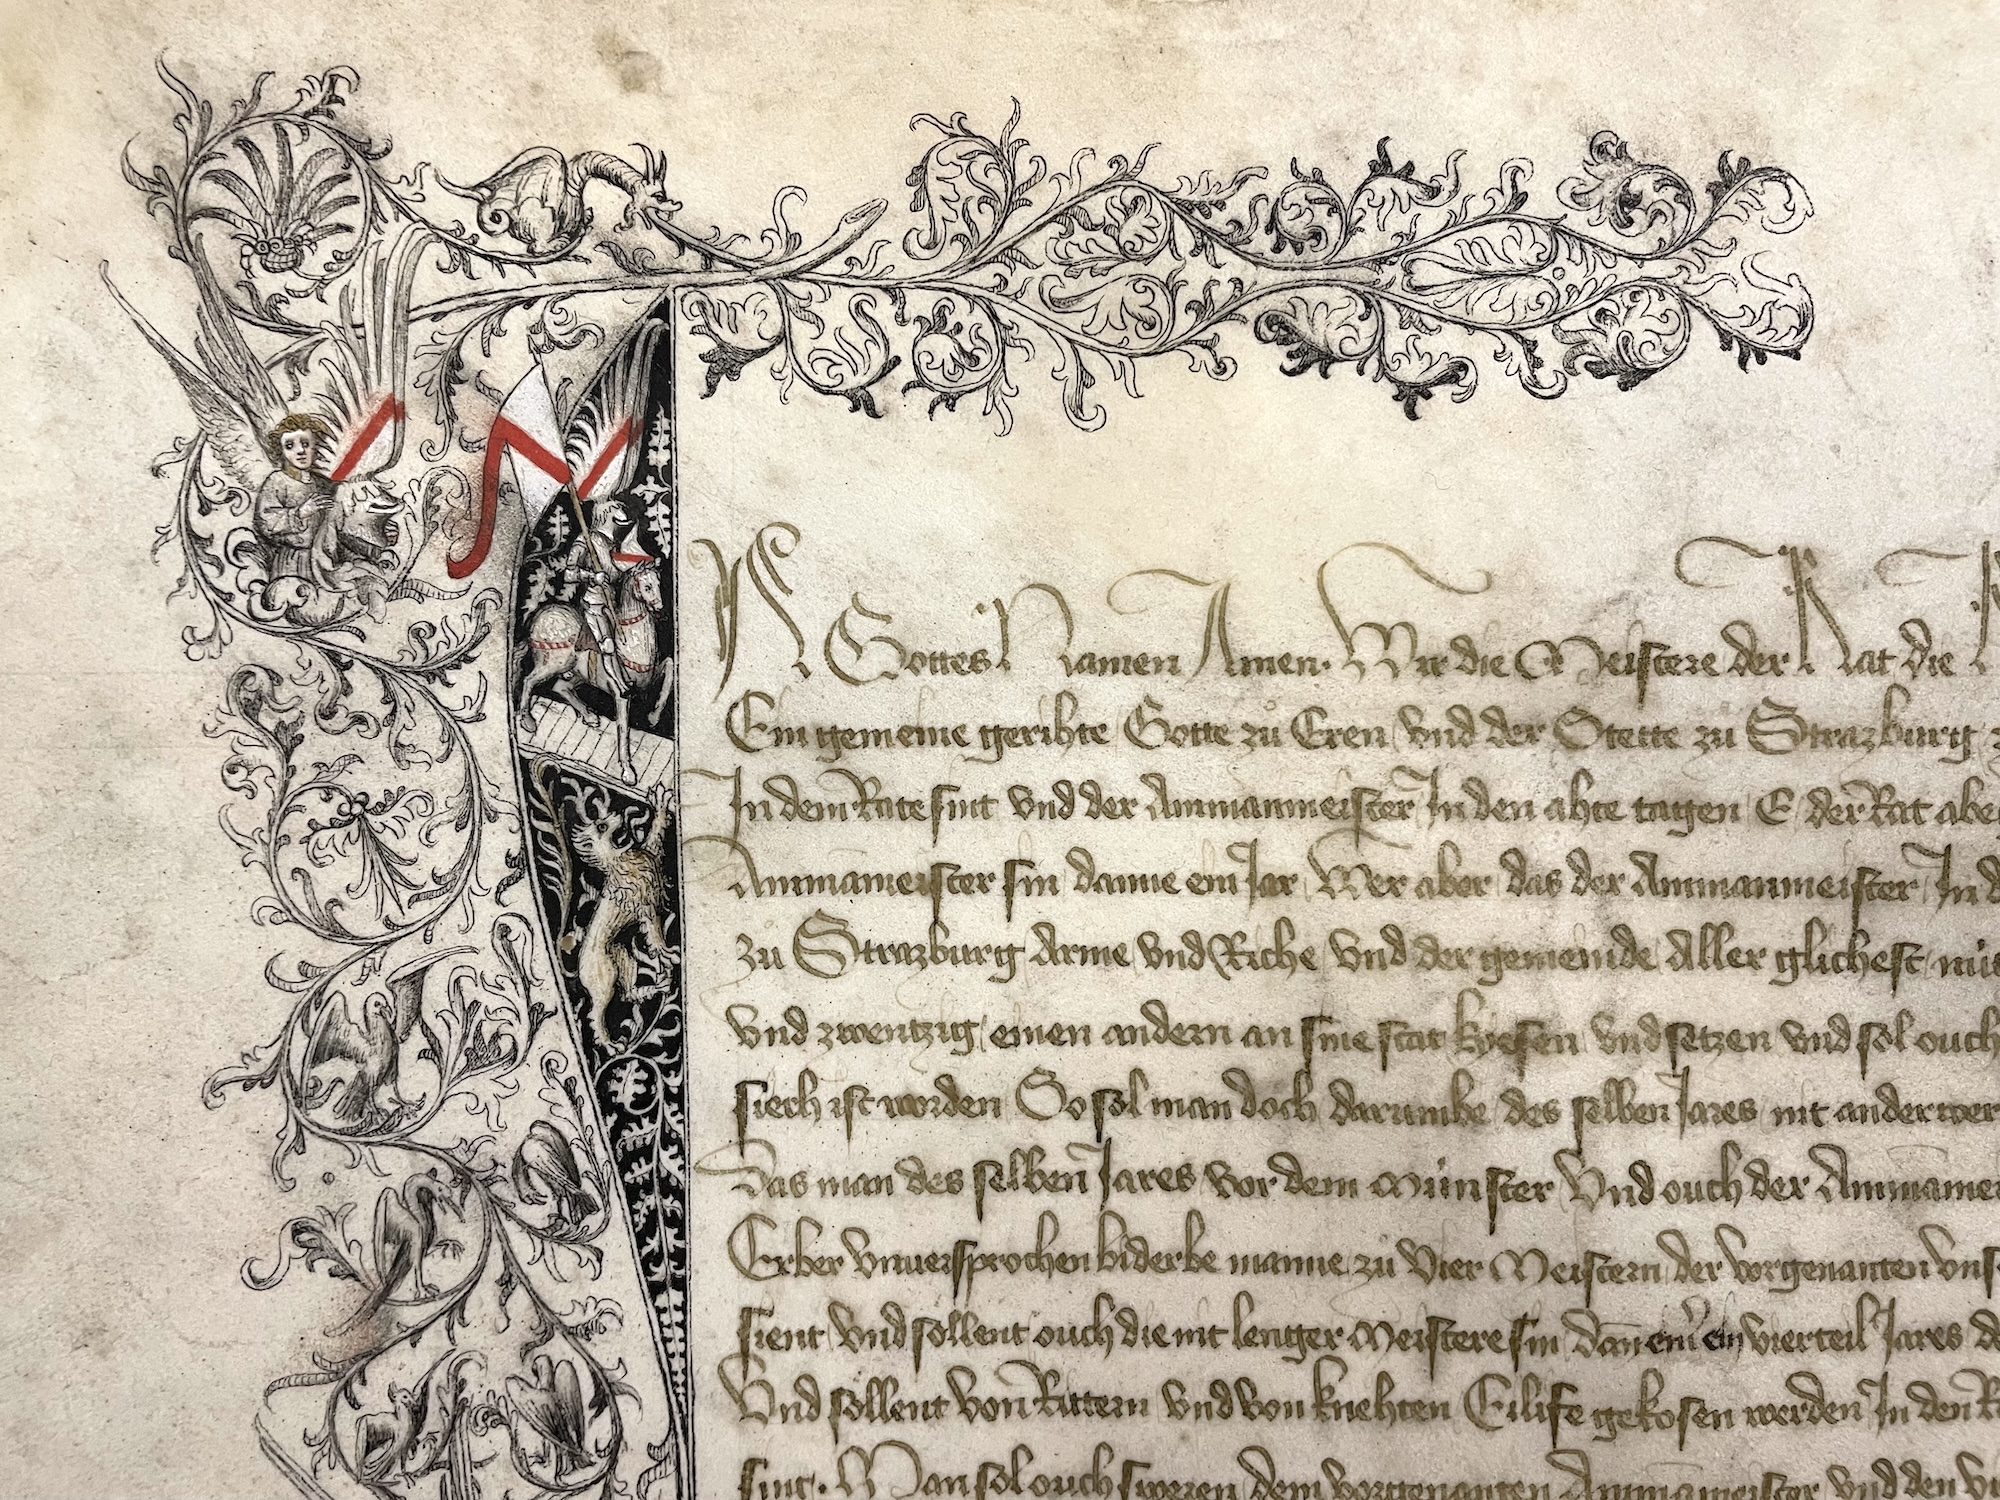 N Gottes Namen Amen. Wir die Meistere der Rat die
Ein gemeine gerihte Gotte zů Eren vnd der Stette zů Strazburg
In dem Rate sint vnd der Ammanmeister In den ahte tagen E der Rat abe
Ammāmeister sin danne ein Jar Wer aber das der Ammanmeister In
zů Strazburg Arme vnd Riche vnd der gemeinde Aller glichest
vnd zwentzig einen andern an sine stat kyesen vnd setzen vnd sol ouch
siech ist worden So sol man doch darumbe des selben Jares nit anderwer
Das man des selben Jares vor dem Múnster Vnd ouch der Ammāmei
Erber vnuersprochen biderbe manne zů vier Meistern der vorgenanten vns
sient vnd söllent ouch die nit lenger Meistere sin dan ein vierteil Jares
Vnd söllent von Rittern vnd von knehten Eilife gekosen werden In den
sint. Man sol ouch sweren dem vorgenanten Ammāmeister vnd den